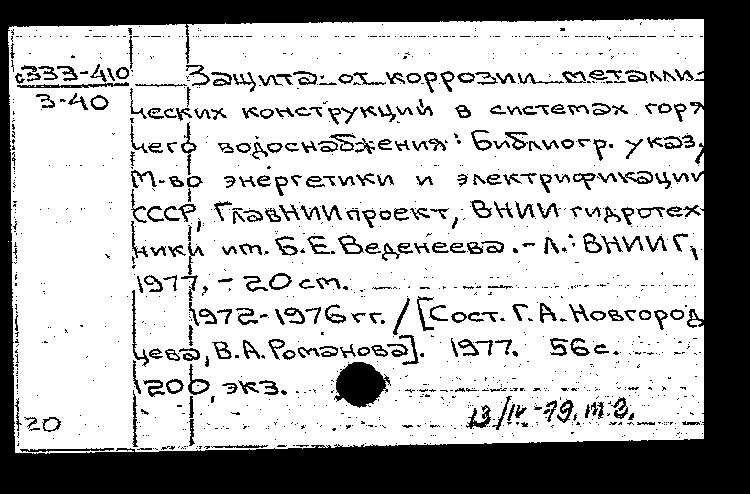 с333-410 Защита от коррозии металли-
3-40 ческих конструкций в системах горя
чего водоснабжения: Библиогр. указ./
М-во энергетики и электрификации
СССР, ГлавНИИпроект, ВНИИ гидротех-
ники им. Б.Е. Веденеева. - Л.: ВНИИГ,
1977. - 20 см.
1972-1976 гг. / [Сост. Г.А. Новгород
цева, В.А. Романова]. 1977. 56 с.
1200 экз.
20 13/IV-79. т 2.